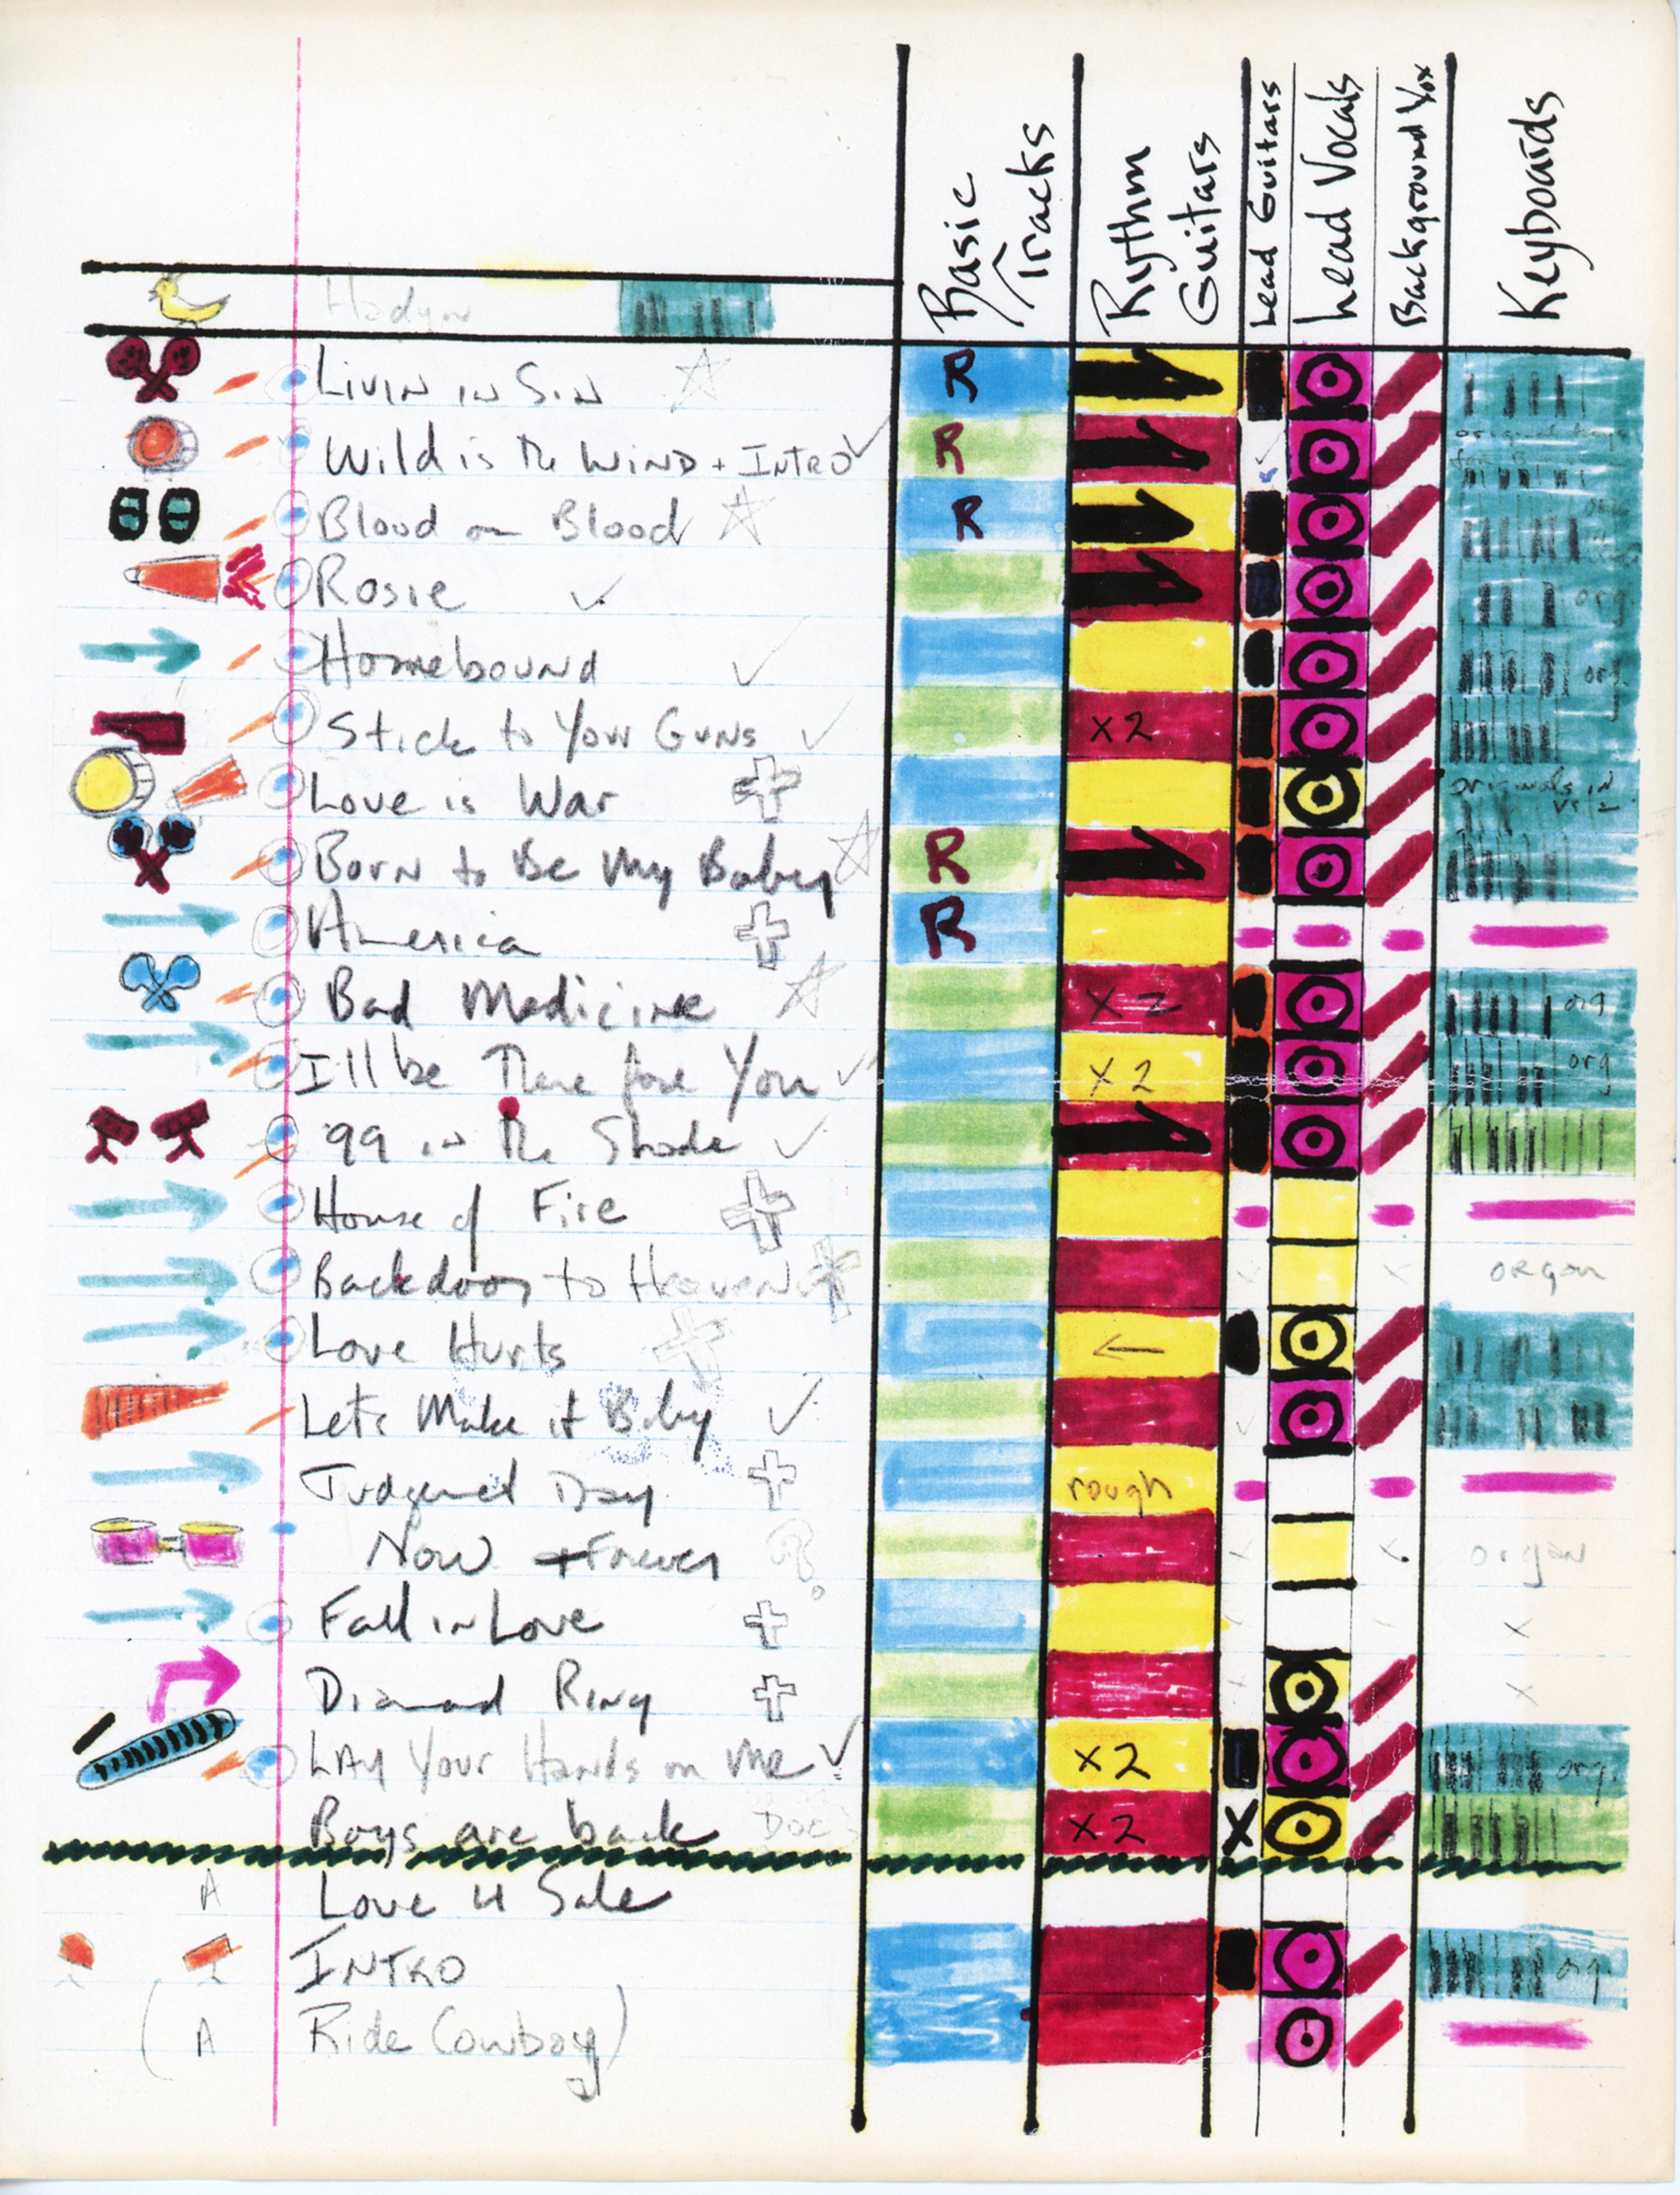 Basic Tracks
Rythm Guitars
Lead Guitars
Lead Vocals
Background Vox
Keyboards
Livin in Sin R
Wild is the Wind + Intro R
Blood on Blood R
Rosie org.
Homebound org.
Stick to Your Guns x2
Love is War originals in
Born to Be My Baby R
America R
Bad Medicine x2 org
I'll be There for You x2 org
99 in the Shade
House of Fire
Backdoor to Heaven organ
Love Hurts ←
Let's Make it Baby
Judgement Day rough
Now + Forever ? organ
Fall in Love x
Diamond Ring x
Lay Your Hands on Me x2 org.
Boys are back Doc x2 X
A Love 4 Sale
Intro org.
(A Ride Cowboy)